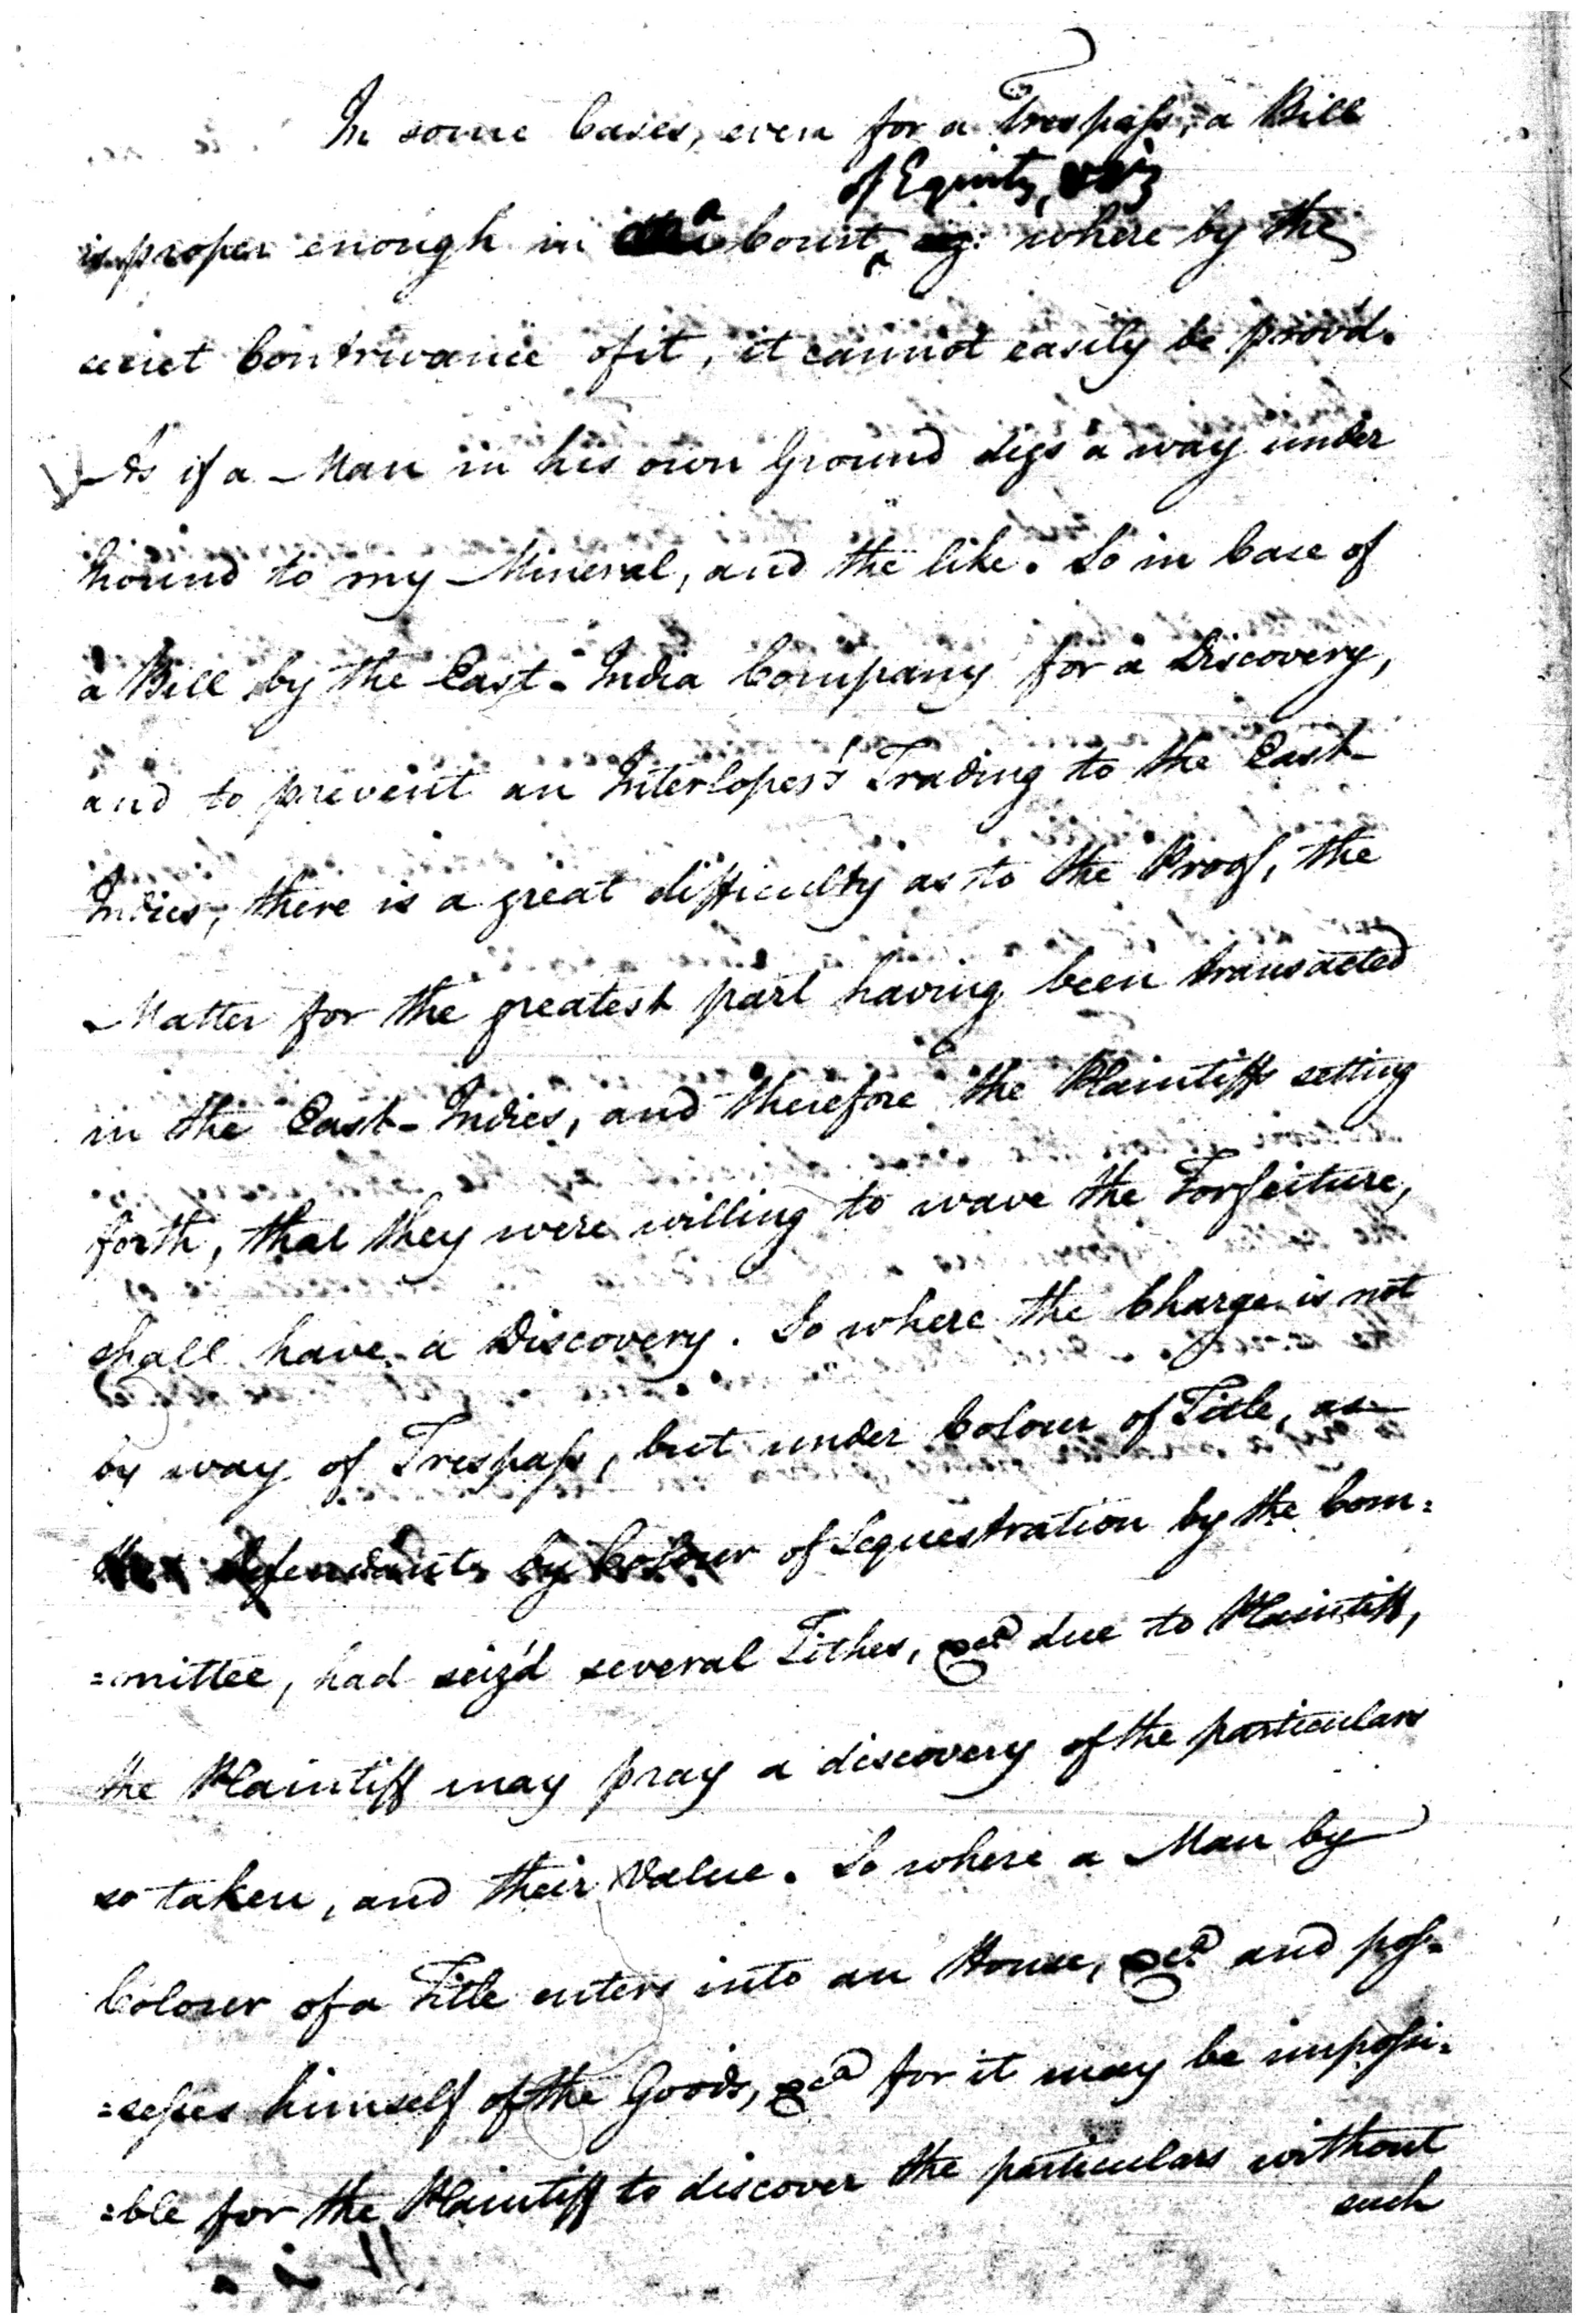 In some Cases, even for a Trespass, a Bill
of Equity, viz
is proper enough in a Court, where by the
secret Contrivance of it, it cannot easily be provd.
As if a Man in his own Ground digs a way under
hound to my Mineral, and the like. So in Case of
a Bill by the East-India Company for a Discovery,
and to prevent an Interloper's Trading to the East-
Indies, there is a great difficulty as to the Proof, the
Matter for the greatest part having been transacted
in the East-Indies, and therefore the Plaintiffs setting
forth, that they were willing to wave the Forfeiture,
shall have a Discovery. So where the Charge is not
by way of Trespass, but under Colour of Title, as
defendants by Colour of Sequestration by the Com=
=mittee, had seiz'd several Tithes, &ca due to Plaintiff,
the Plaintiff may pray a discovery of the particulars
so taken, and their Value. So where a Man by
Colour of a Title enters into an House, &ca and pos=
=sesses himself of the Goods, &ca for it may be impossi=
=ble for the Plaintiff to discover the particulars without
such